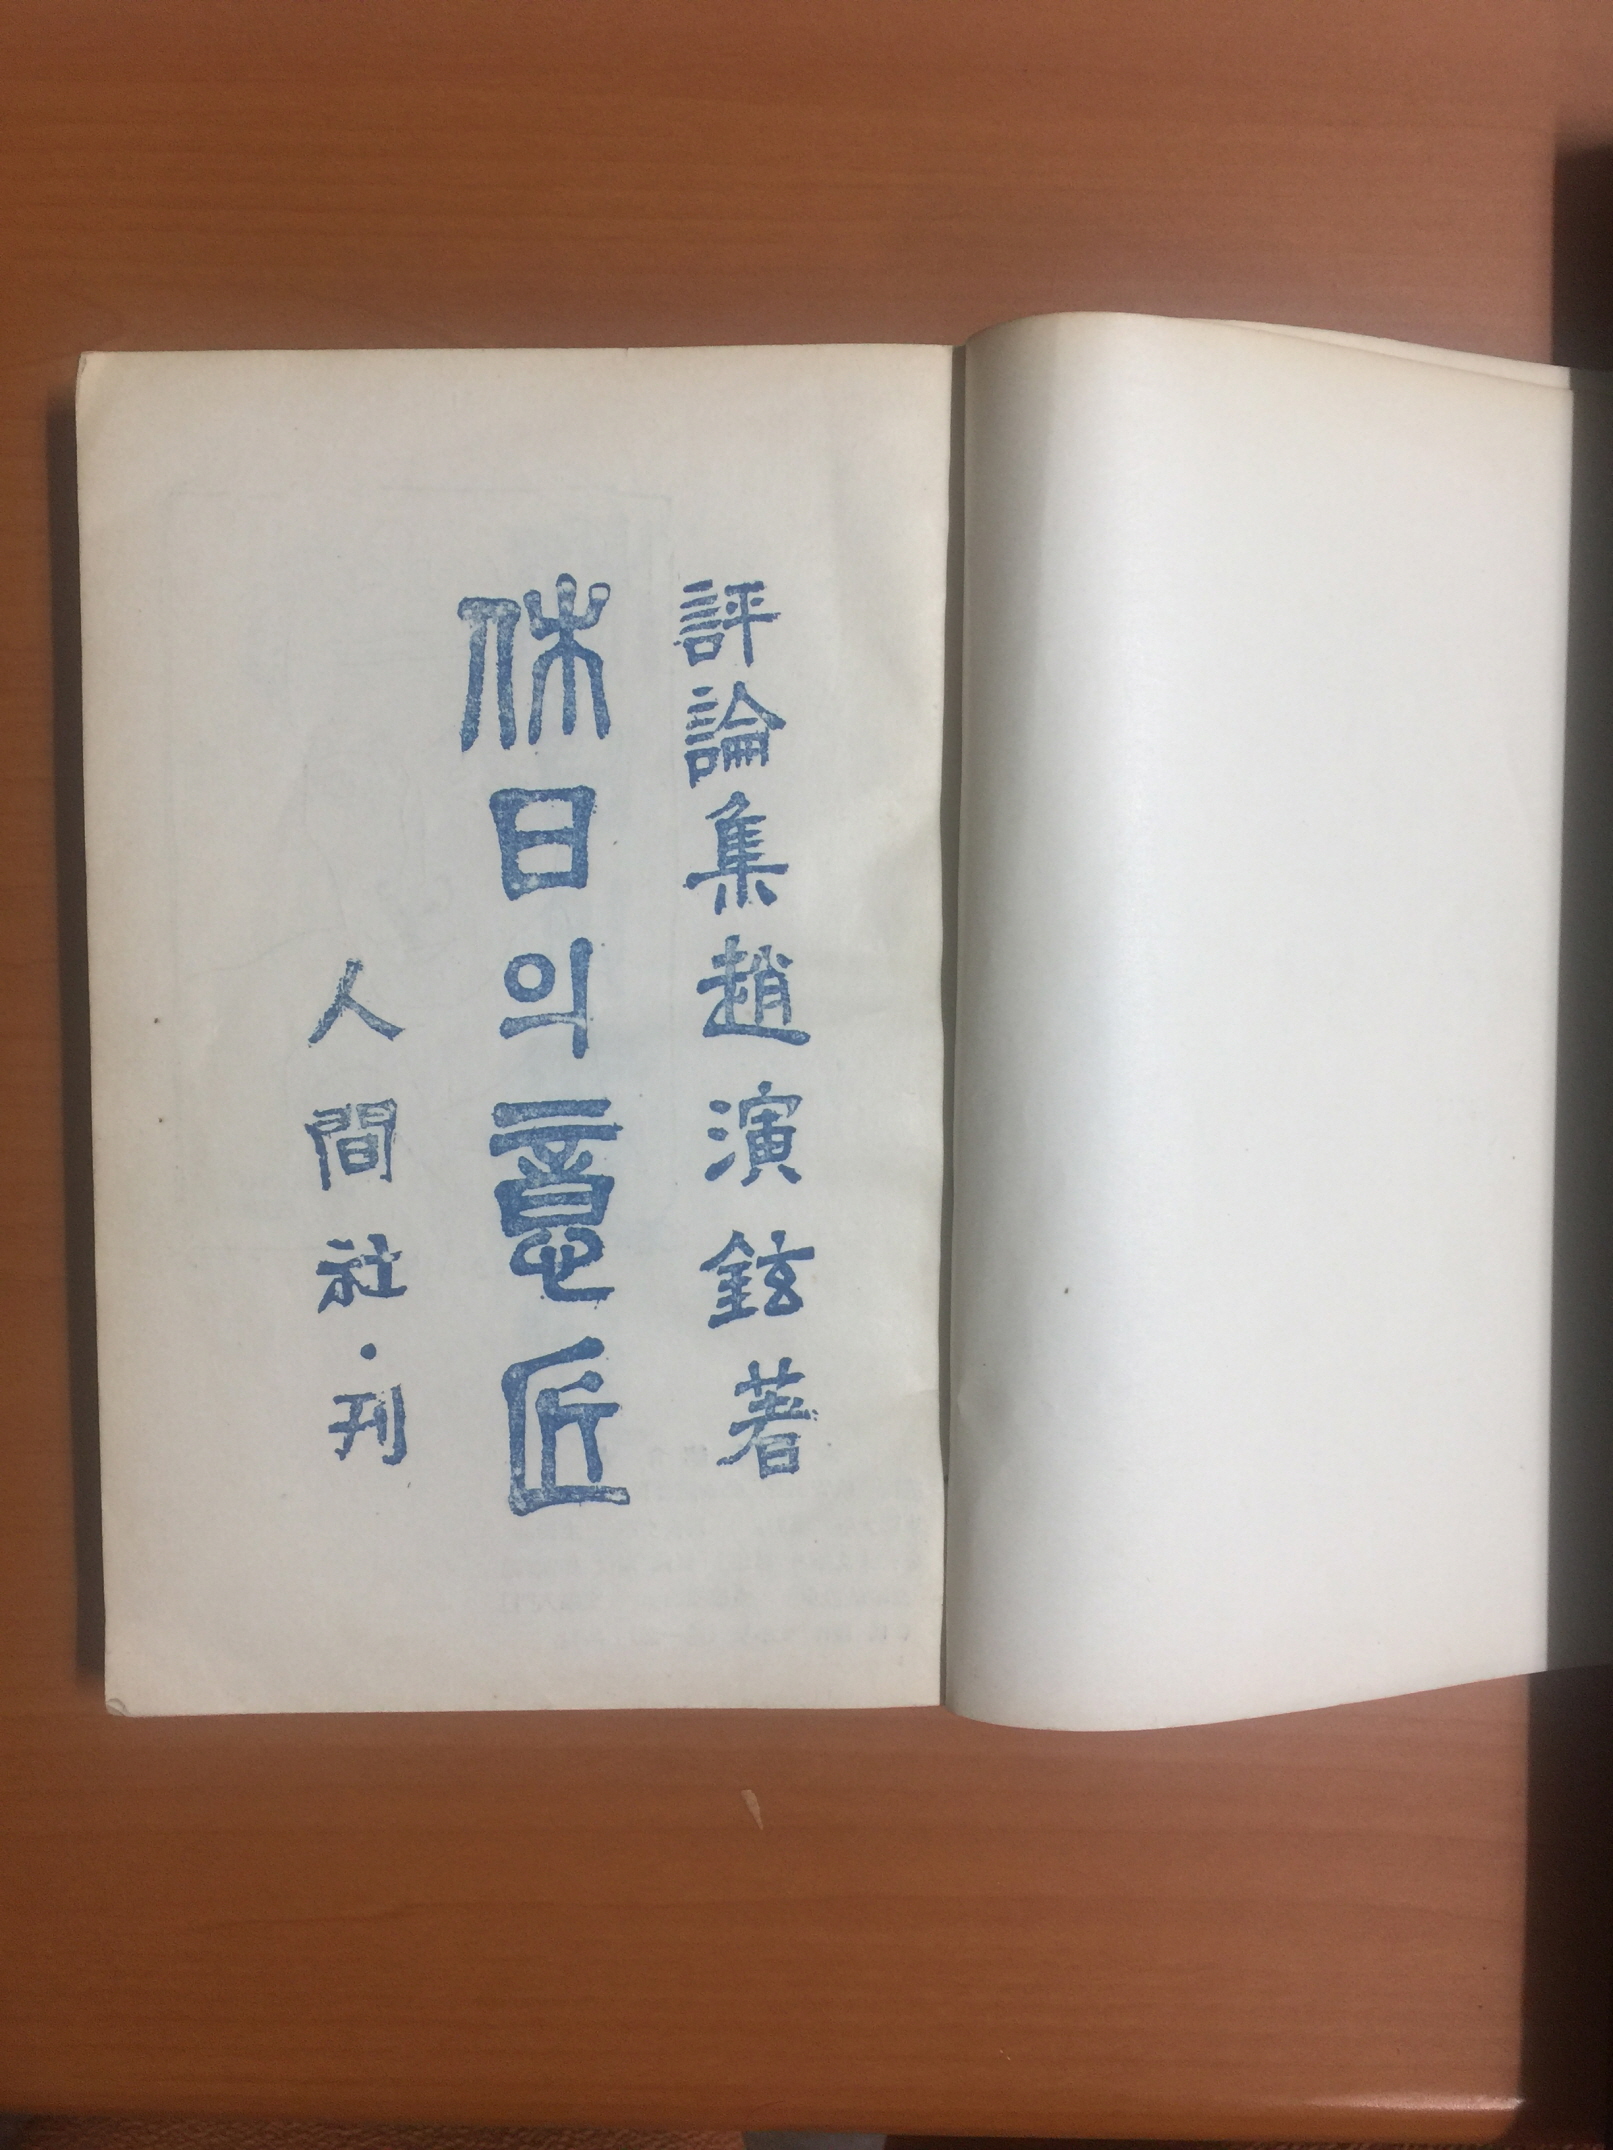 評論集 趙演鉉著
休日의意匠
人間社·刊